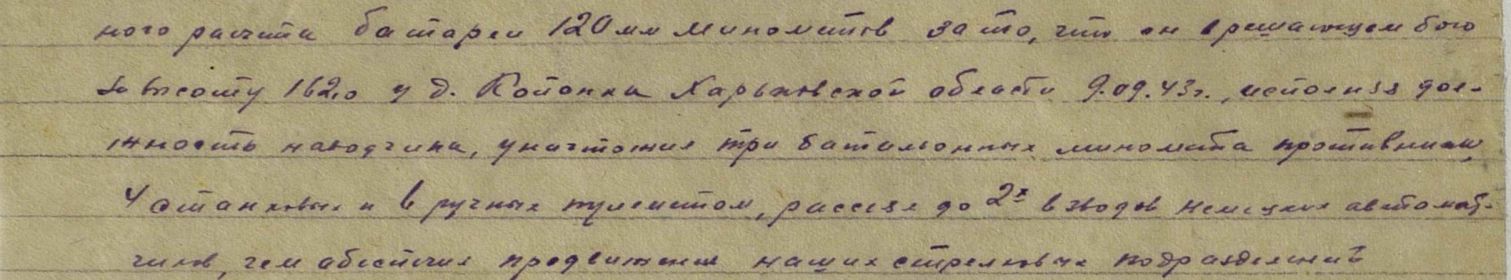 ного расчета батареи 120 мм минометов за то, что он в решающем бою
за высоту 162,0 у д. Копанки Харьковской области 9.09.43г., исполняя дол-
жность наводчика, уничтожил три батальонных миномета противника,
4 станковых и 6 ручных пулеметом, рассеял до 2х взводов немецких автомат-
чиков, чем обеспечил продвижение наших стрелковых подразделений